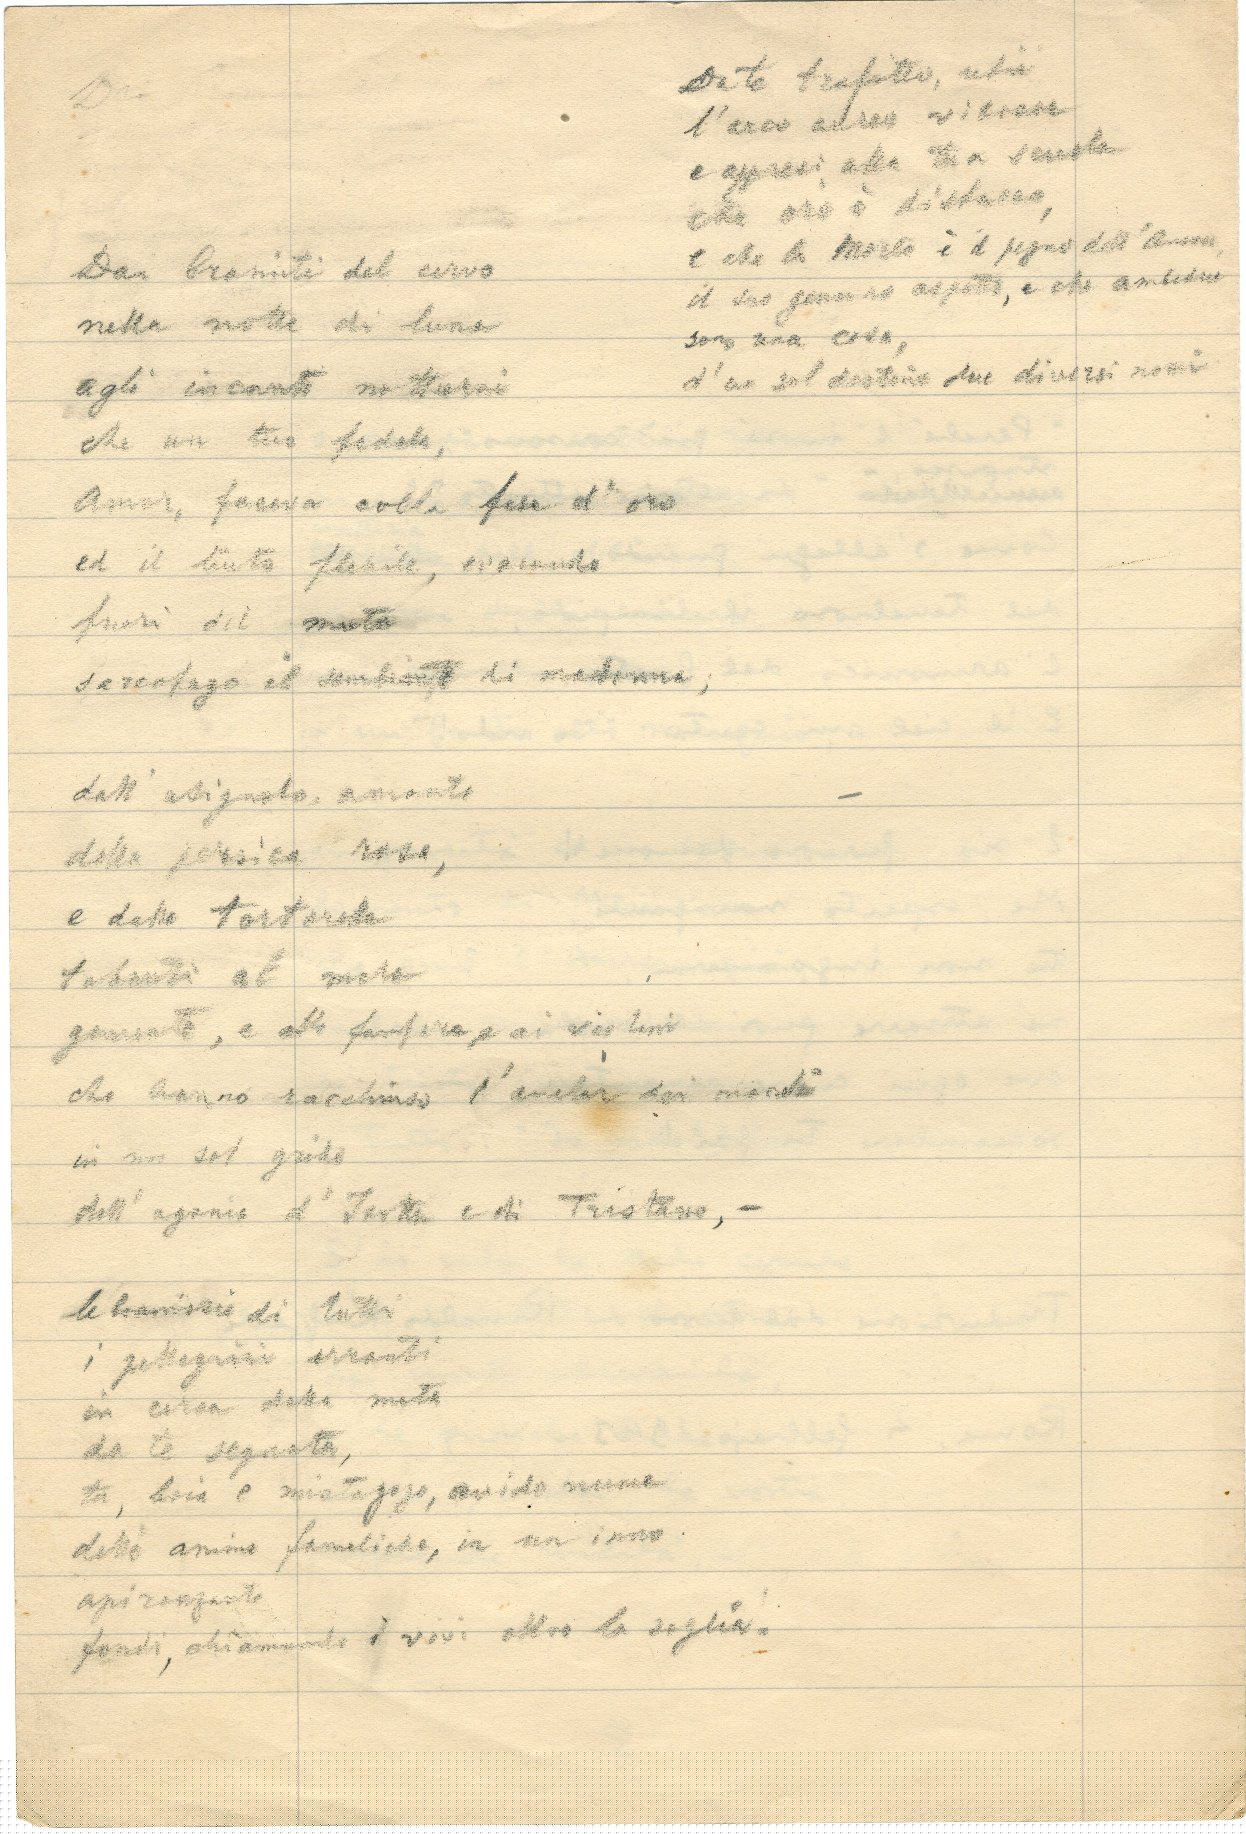 Da te trafitto, udii
l'arco aureo vibrare
e appresi alla tua scuola
che oro è distacco,
e che la Morte è il segno dell'Amore,
il suo genuino aspetto, e che ambedue
sono una cosa,
d'un sol destino due diversi nomi
Dai bramiti del cervo
nella notte di luna
agli incanti notturni
che un tuo fedele,
Amor, faceva colla fese d'oro
ed il liuto flebile, evocando
fuori del muto
sarcofago il sembiante di madonna;
dall'usignolo, amante
della persica rosa,
e dalle tortorelle
tubanti al melo
gemente, e alle fanfare e ai violini
che hanno racchiuso l'anelar dei mondi
in un sol grido
dell'agonia d'Isotta e di Tristano, –
le bramosie di tutti
i pellegrini erranti
in cerca della meta
da te segnata,
tu, boia e mistagogo, avido nume
delle anime fameliche, in un inno
fondi, chiamando i vivi oltre la soglia!